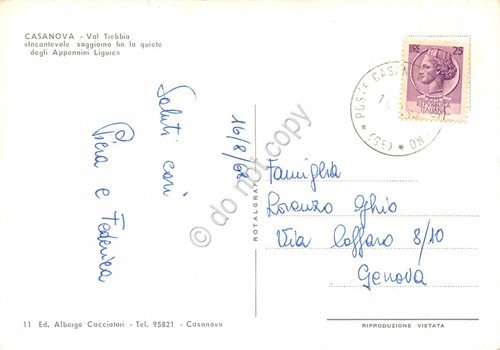 CASANOVA - Val Trebbia
«Incantevole soggiorno fra la quiete
degli Appennini Liguri»
16/8/68
Saluti cari
Piera e Federica
ROTALGRAF
LIRE 25
REPUBBLICA
ITALIANA
* POSTE CASANOVA
(GE) *
Famiglia
Lorenzo Ghio
Via Caffaro 8/10
Genova
11 Ed. Albergo Cacciatori - Tel. 95821 - Casanova
RIPRODUZIONE VIETATA
© do not copy